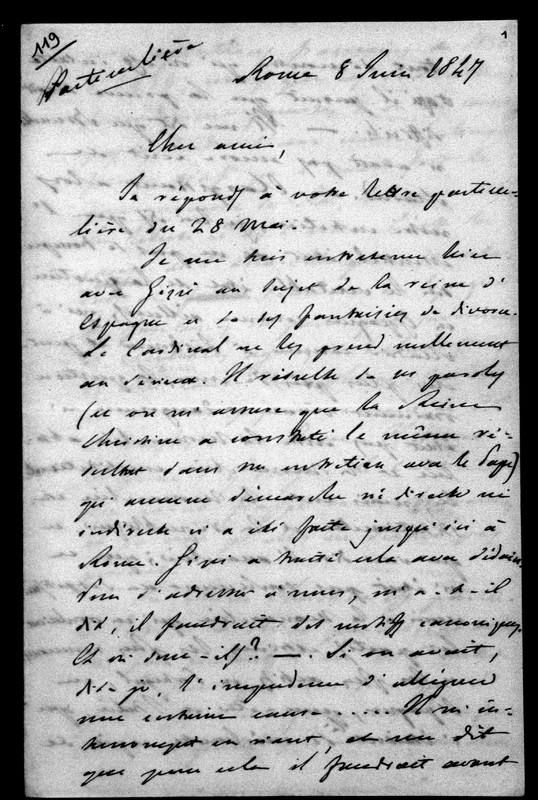 119
1
Particulière
Rome 8 Juin 1847
Cher ami,
Je réponds à votre lettre particu-
lière du 28 Mai.
Je me suis entretenu hier
avec Gizzi au sujet de la reine d'
Espagne et de ses fantaisies de divorce.
Le Cardinal ne les prend nullement
au sérieux. Il résulte de ses paroles
(et on m'assure que la Reine
Christine a constaté le même ré-
sultat dans son entretien avec le Pape)
qu'aucune démarche ni directe ni
indirecte n'a été faite jusqu'ici à
Rome. Gizzi a traité cela avec dédain.
Pour s'adresser à nous, m'a-t-il
dit, il faudrait des motifs canoniques.
Et où sont-ils? —. Si on avait,
dis-je, l'impudence d'alléguer
une certaine cause ..... Il m'in-
terrompit en riant, et me dit
que pour cela il faudrait avant